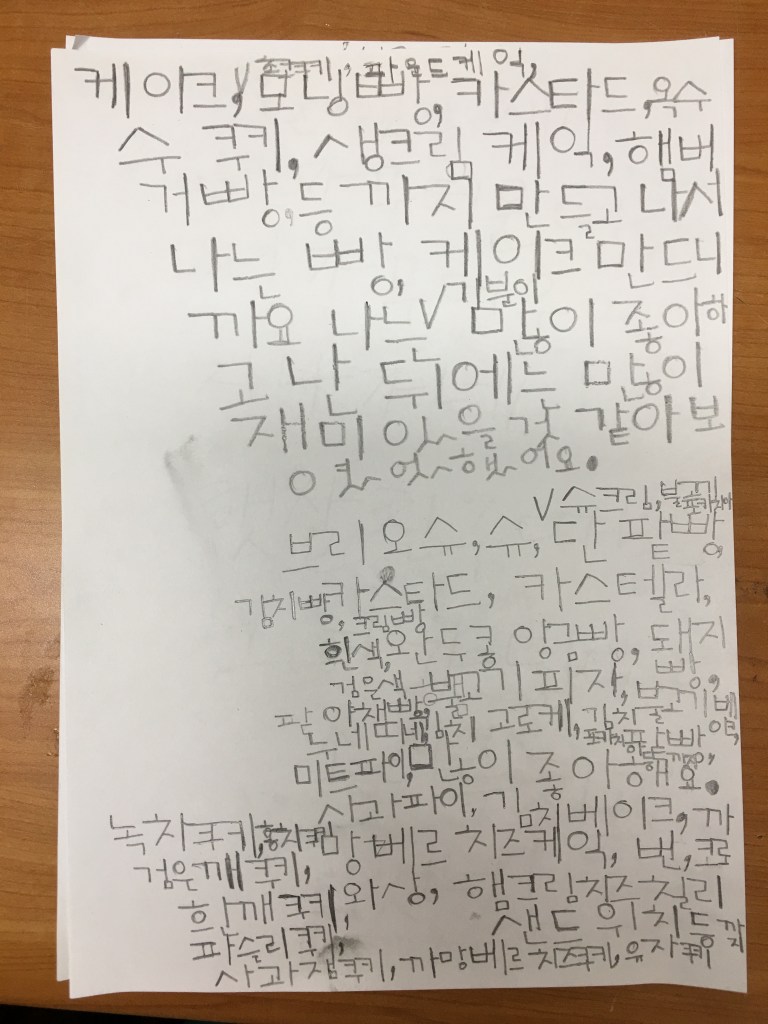 초코쿠키, 파운드케익,
케이크,∨모닝빵, 카스타드, 옥수
수 쿠키, 생크림 케익, 햄버
거빵, 등 까지 만들고 나서
나는 빵, 케이크 만드니
김분이
까요 나는∨많이 좋아하
고 난 뒤에는 많이
재미 있을 것 같아 보
였어했어요.
∨슈크림, 불고기
브리오슈, 슈, 단 팥빵,
김치빵, 카스타드, 카스텔라,
크림빵
흰색, 완두콩 앙금빵, 돼지
검은색 불고기 피자, 빵,
팥 야채빵, 김치 고로케, 김치불고기 베이글,
미트파이, 많이 좋아해요.
사과파이, 김치베이크, 까
녹차쿠키, 홍차쿠키 망베르 치즈케익, 번, 크로
검은깨 쿠키, 와상, 햄크림치즈칠리
흰깨쿠키, 샌드위치등 까지
파슬리쿠키,
사과잼쿠키, 까망베르 치즈쿠키, 유자쿠키